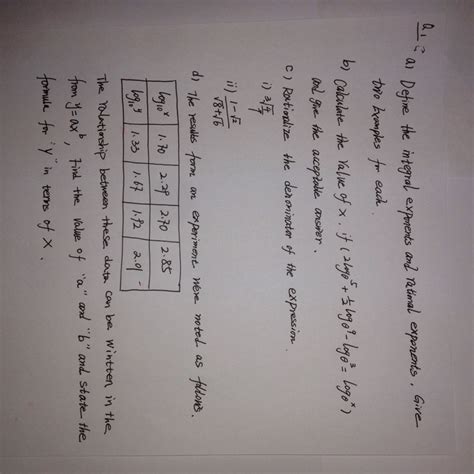 Q1: a) Define the integral exponents and rational exponents. Give
two Examples for each.
b) Calculate the value of x. if (2log₁₀⁵ + ½ log₁₀⁹ - log₁₀³ = log₁₀ˣ)
and give the acceptable answer.
c) Rationalize the denominator of the expression.
i) 3√4/7
ii) 1-√2/√8+√6
d) The results form an experiment were noted as follows.
log₁₀ˣ 1.70 2.29 2.70 2.85
log₁₀ʸ 1.33 1.67 1.92 2.01
The relationship between these data can be wintten in the
from y=axᵇ, Find the value of "a" and "b" and state the
formula for "y" in terms of x.